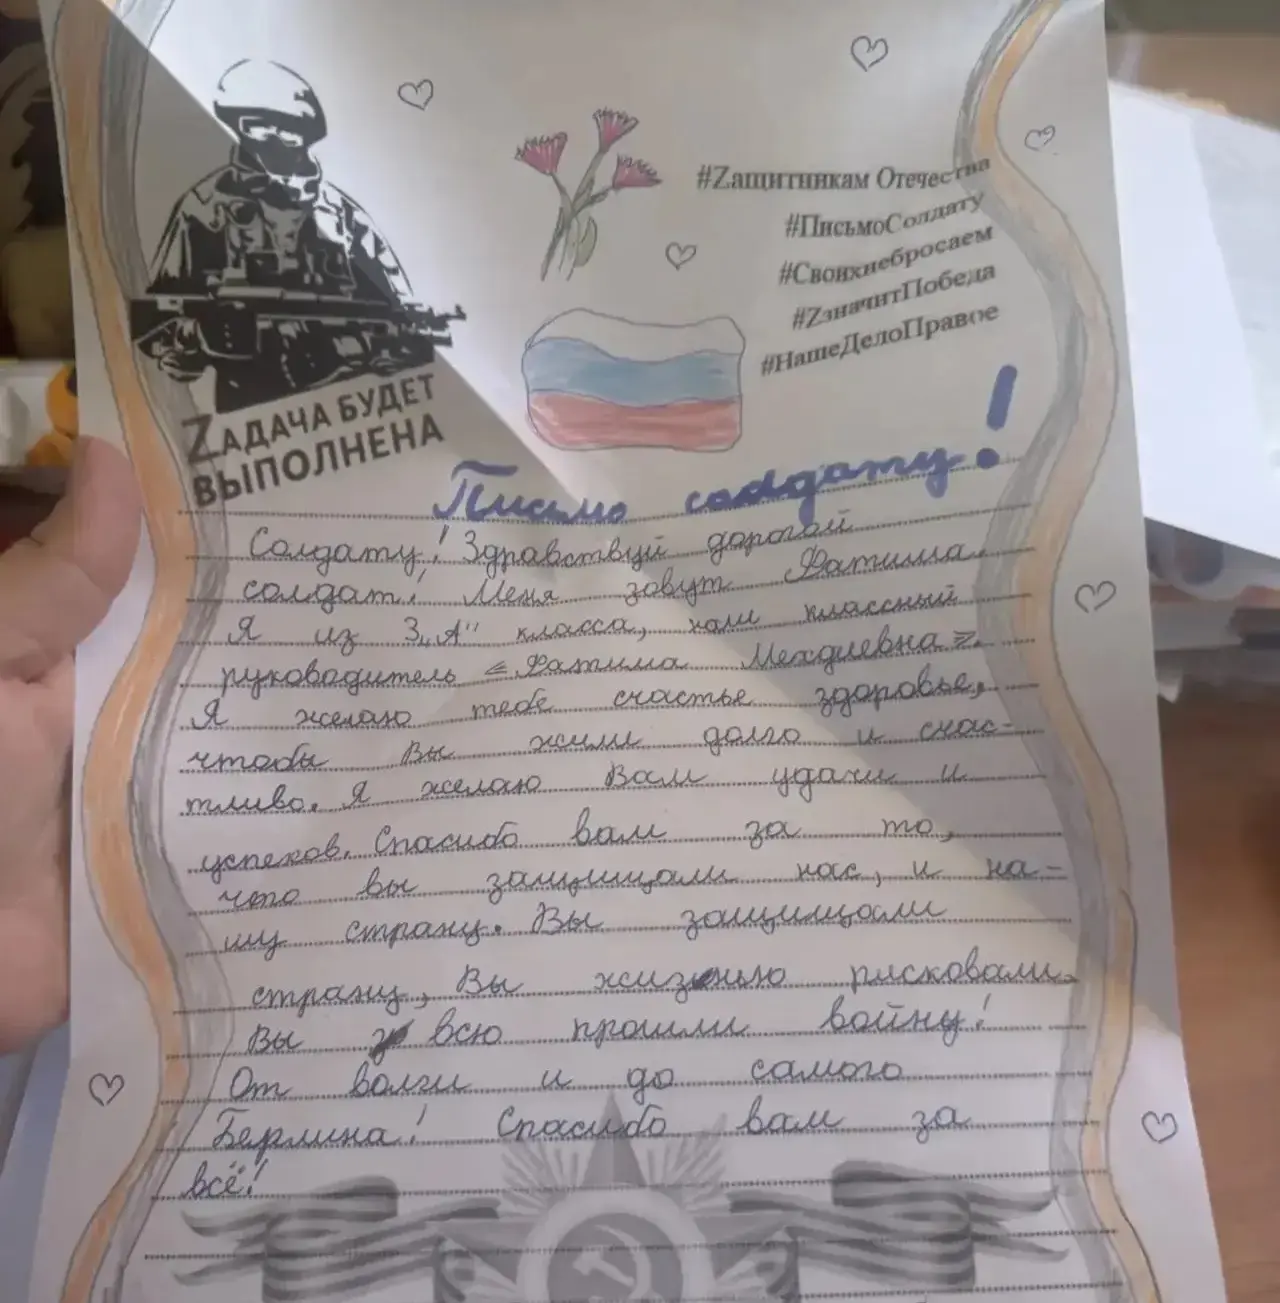 #Zащитникам Отечества
#ПисьмоСолдату
#Своихнебросаем
#ZзначитПобеда
#НашеДелоПравое
ZАДАЧА БУДЕТ
ВЫПОЛНЕНА
Письмо солдату!
Солдату! Здравствуй дорогой
солдат! Меня зовут Фатима.
Я из 3„А" класса, наш классный
руководитель «Фатима Мехдиевна».
Я желаю тебе счастье здоровье,
чтобы Вы жили долго и счас-
тливо. Я желаю Вам удачи и
успехов. Спасибо вам за то,
что вы защищали нас, и на-
шу страну. Вы защищали
страну, Вы жизнью рисковали.
Вы всю прошли войну!
От волги и до самого
Берлина! Спасибо вам за
всё!